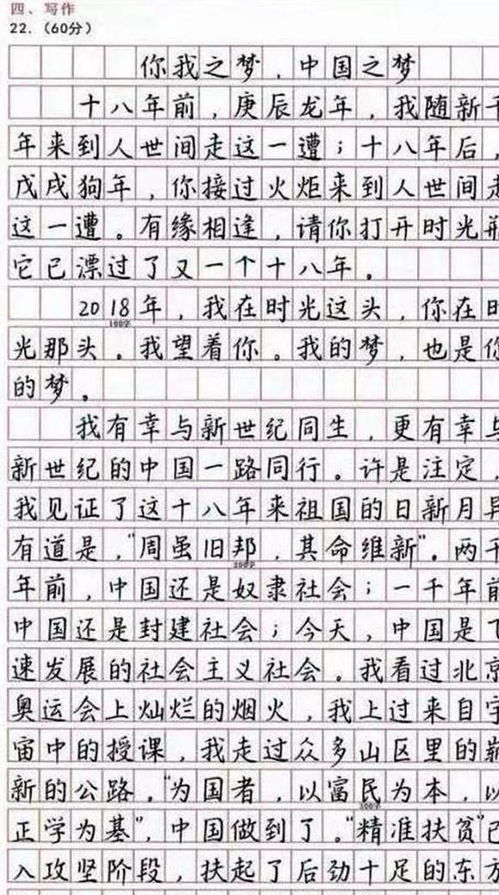 四、写作
22.（60分）
你我之梦，中国之梦
十八年前，庚辰龙年，我随新千
年来到人世间走这一遭；十八年后，
戊戌狗年，你接过火炬来到人世间走
这一遭。有缘相逢，请你打开时光瓶
它已漂过了又一个十八年。
2018年，我在时光这头，你在时
100字
光那头。我望着你。我的梦，也是你
的梦。
我有幸与新世纪同生，更有幸与
新世纪的中国一路同行。许是注定，
我见证了这十八年来祖国的日新月异
有道是，“周虽旧邦，其命维新”。两千
200字
年前，中国还是奴隶社会；一千年前
中国还是封建社会；今天，中国是飞
速发展的社会主义社会。我看过北京
奥运会上灿烂的烟火，我上过来自宇
宙中的授课，我走过众多山区里的崭
新的公路。“为国者，以富民为本，以
300字
正学为基”，中国做到了。“精准扶贫”已
入攻坚阶段，扶起了后劲十足的东方